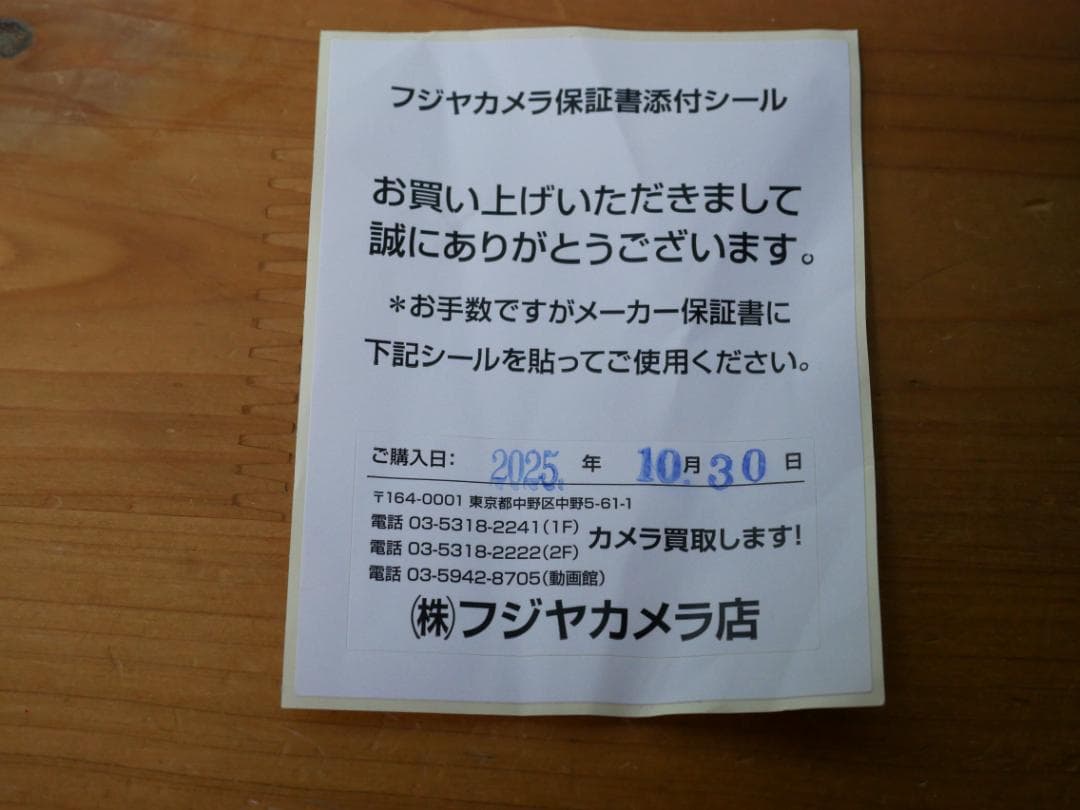 フジヤカメラ保証書添付シール
お買い上げいただきまして
誠にありがとうございます。
*お手数ですがメーカー保証書に
下記シールを貼ってご使用ください。
ご購入日: 2025. 年 10. 月 30 日
〒164-0001 東京都中野区中野5-61-1
電話 03-5318-2241(1F)
電話 03-5318-2222(2F)
カメラ買取します!
電話 03-5942-8705(動画館)
㈱フジヤカメラ店